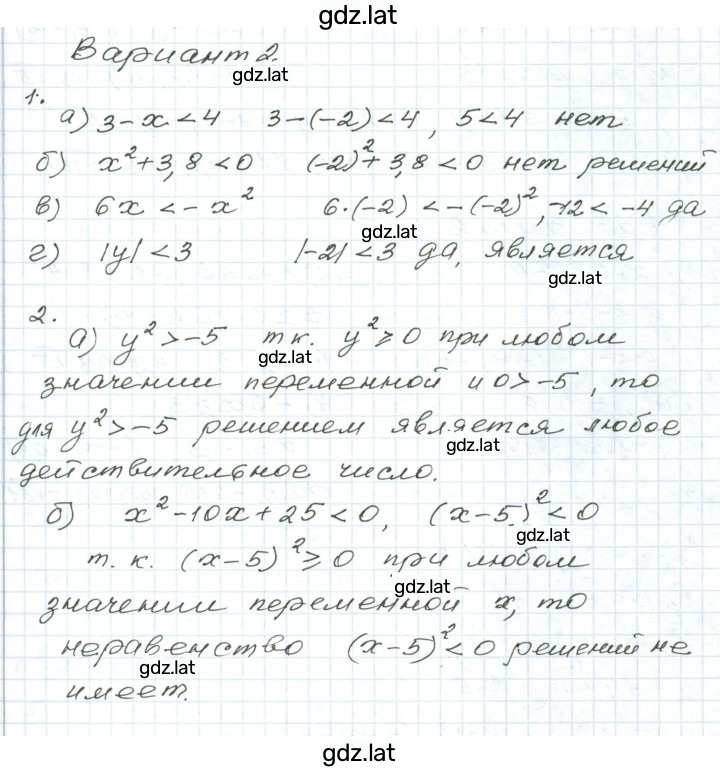 gdz.lat
Вариант 2.
gdz.lat
1.
а) 3-x<4 3-(-2)<4, 5<4 нет
б) x²+3,8<0 (-2)²+3,8<0 нет решений
в) 6x<-x² 6·(-2)<-(-2)², -12<-4 да
gdz.lat
г) |y|<3 |-2|<3 да, является
gdz.lat
2.
а) y²>-5 т.к. y²⩾0 при любом
gdz.lat
значении переменной и 0>-5, то
для y²>-5 решением является любое
gdz.lat
действительное число.
б) x²-10x+25<0, (x-5)²<0
gdz.lat
т.к. (x-5)²⩾0 при любом
gdz.lat
значении переменной x, то
неравенство (x-5)²<0 решений не
gdz.lat
имеет.
gdz.lat